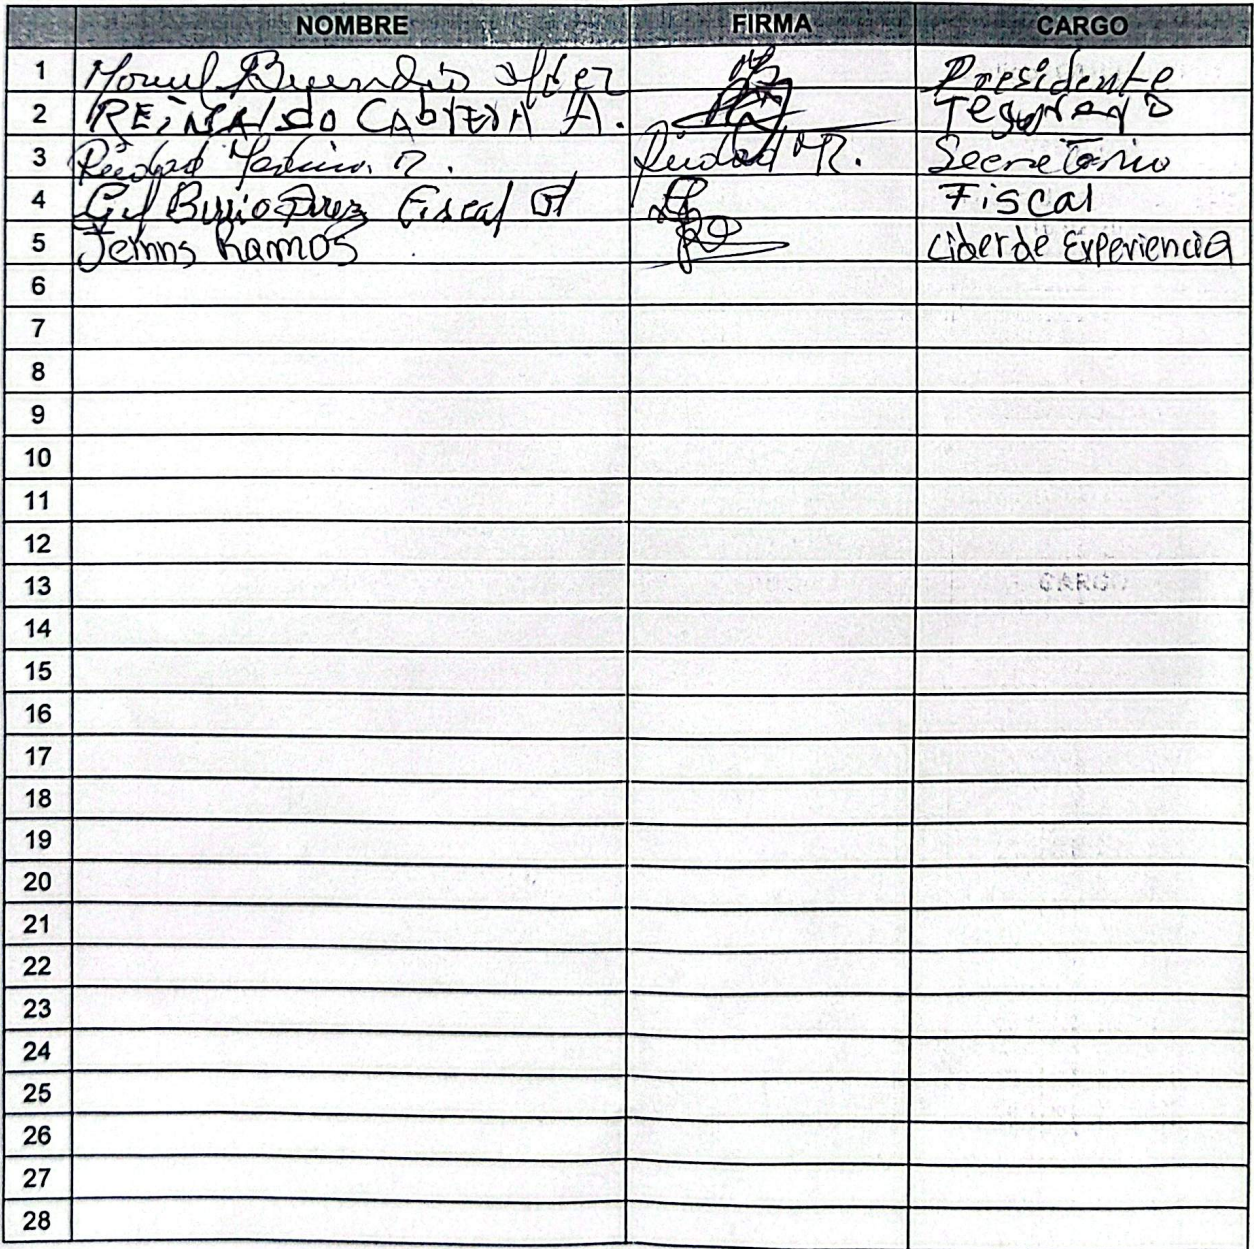 NOMBRE FIRMA CARGO
1 Buendia Presidente
2 REiNAldo CAbrERA A. Tesorero
3 Piedad Medina R. Piedad MR. Secretario
4 Gil Fiscal Fiscal
5 Ramos Lider de Experiencia
6
7
8
9
10
11
12
13 CARGO
14
15
16
17
18
19
20
21
22
23
24
25
26
27
28